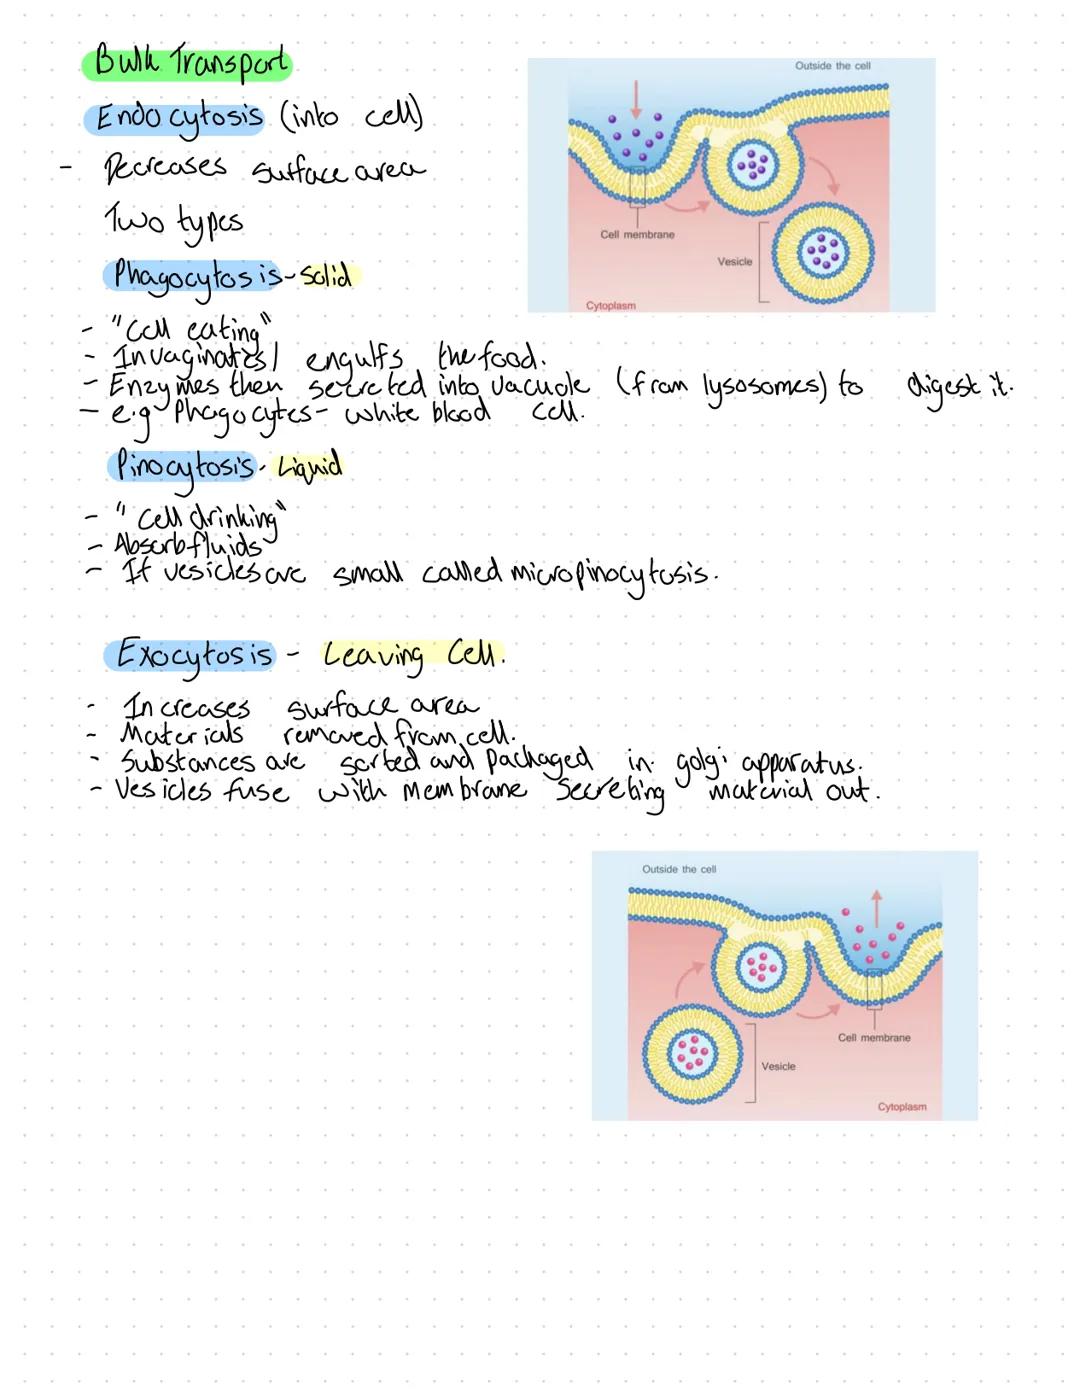 Bulk Transport
Endocytosis (into cell)
- Decreases surface area
Two types
Phagocytosis - Solid
- "Cell eating"
- Invaginates / engulfs the food.
- Enzymes then secreted into vacuole (from lysosomes) to digest it.
- e.g Phagocytes - white blood cell.
Pinocytosis - Liquid
- "Cell drinking"
- Absorb fluids
- If vesicles are small called micropinocytosis.
Exocytosis - Leaving Cell.
- Increases surface area
- Materials removed from cell.
- Substances are sorted and packaged in golgi apparatus.
- Vesicles fuse with membrane secreting material out.
Outside the cell
Cell membrane
Vesicle
Cytoplasm
Outside the cell
Cell membrane
Vesicle
Cytoplasm